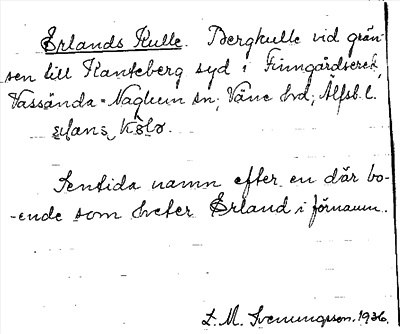 Erlands Kulle. Bergkulle vid grän-
sen till Kanteberg syd i Finngärdsered,
Vassända-Naglum sn, Väne hd, Älfsb. l.
Sentida namn efter en där bo-
-ende som heter Erland i förnamn.
L. M. Svenungsson. 1936.